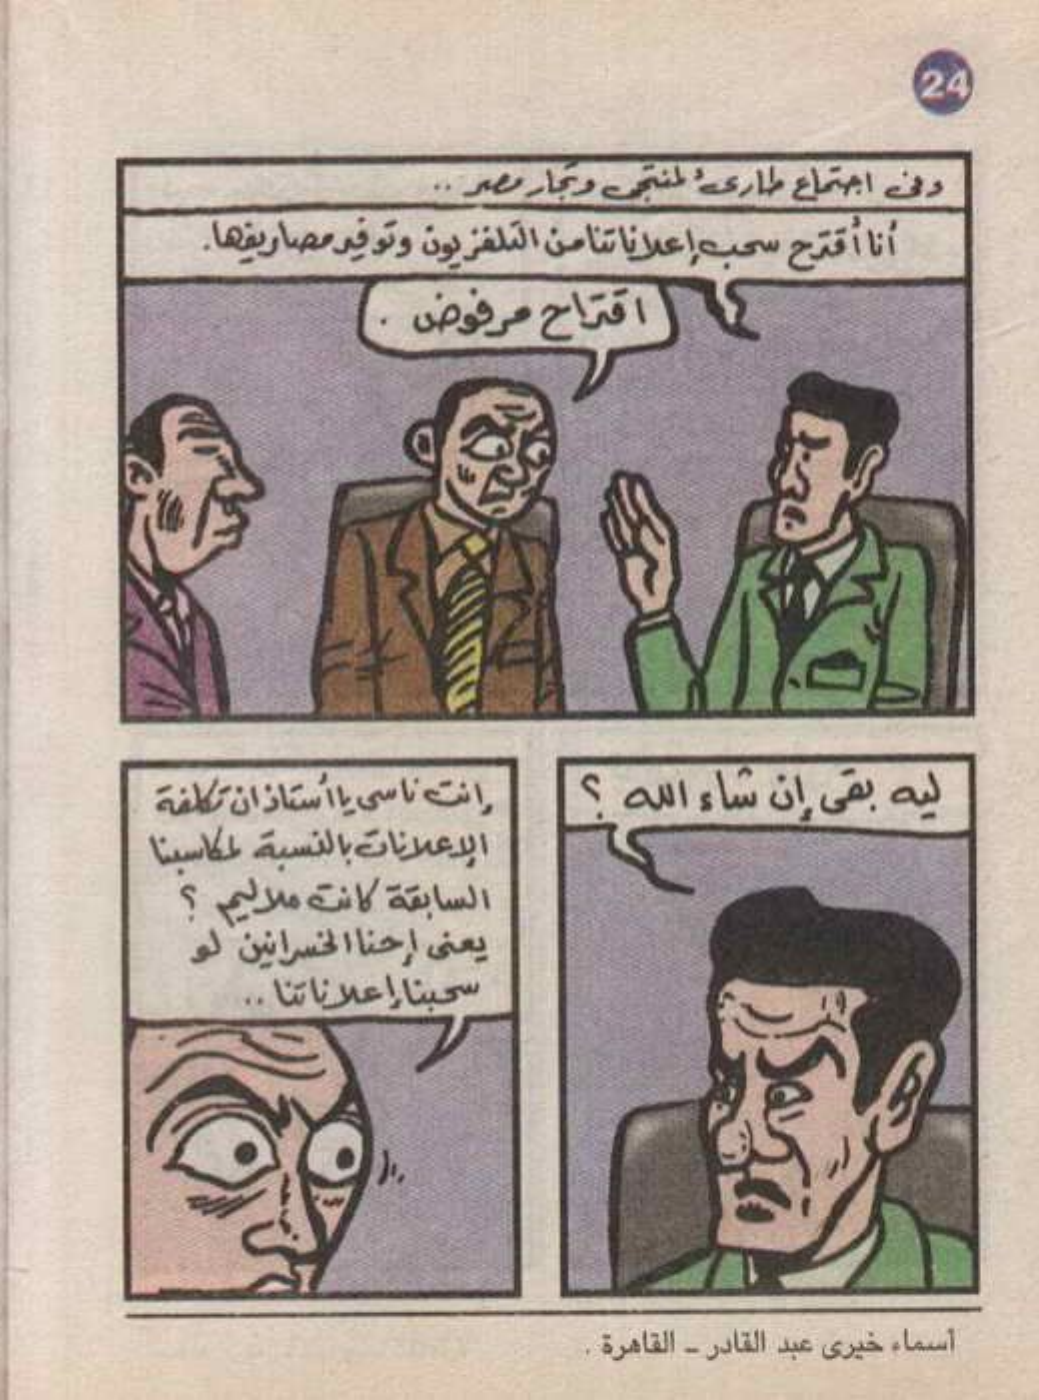 24
وفى اجتماع طارىء لمنتجى وتجار مصر ..
أنا أقترح سحب إعلاناتنا من التلفزيون وتوفير مصاريفها.
اقتراح مرفوض .
ليه بقى إن شاء الله ؟
إنت ناسى يا أستاذ ان تكلفة
الإعلانات بالنسبة لمكاسبنا
السابقة كانت ملاليم ؟
يعنى إحنا الخسرانين لو
سحبنا إعلاناتنا ..
أسماء خيرى عبد القادر - القاهرة .